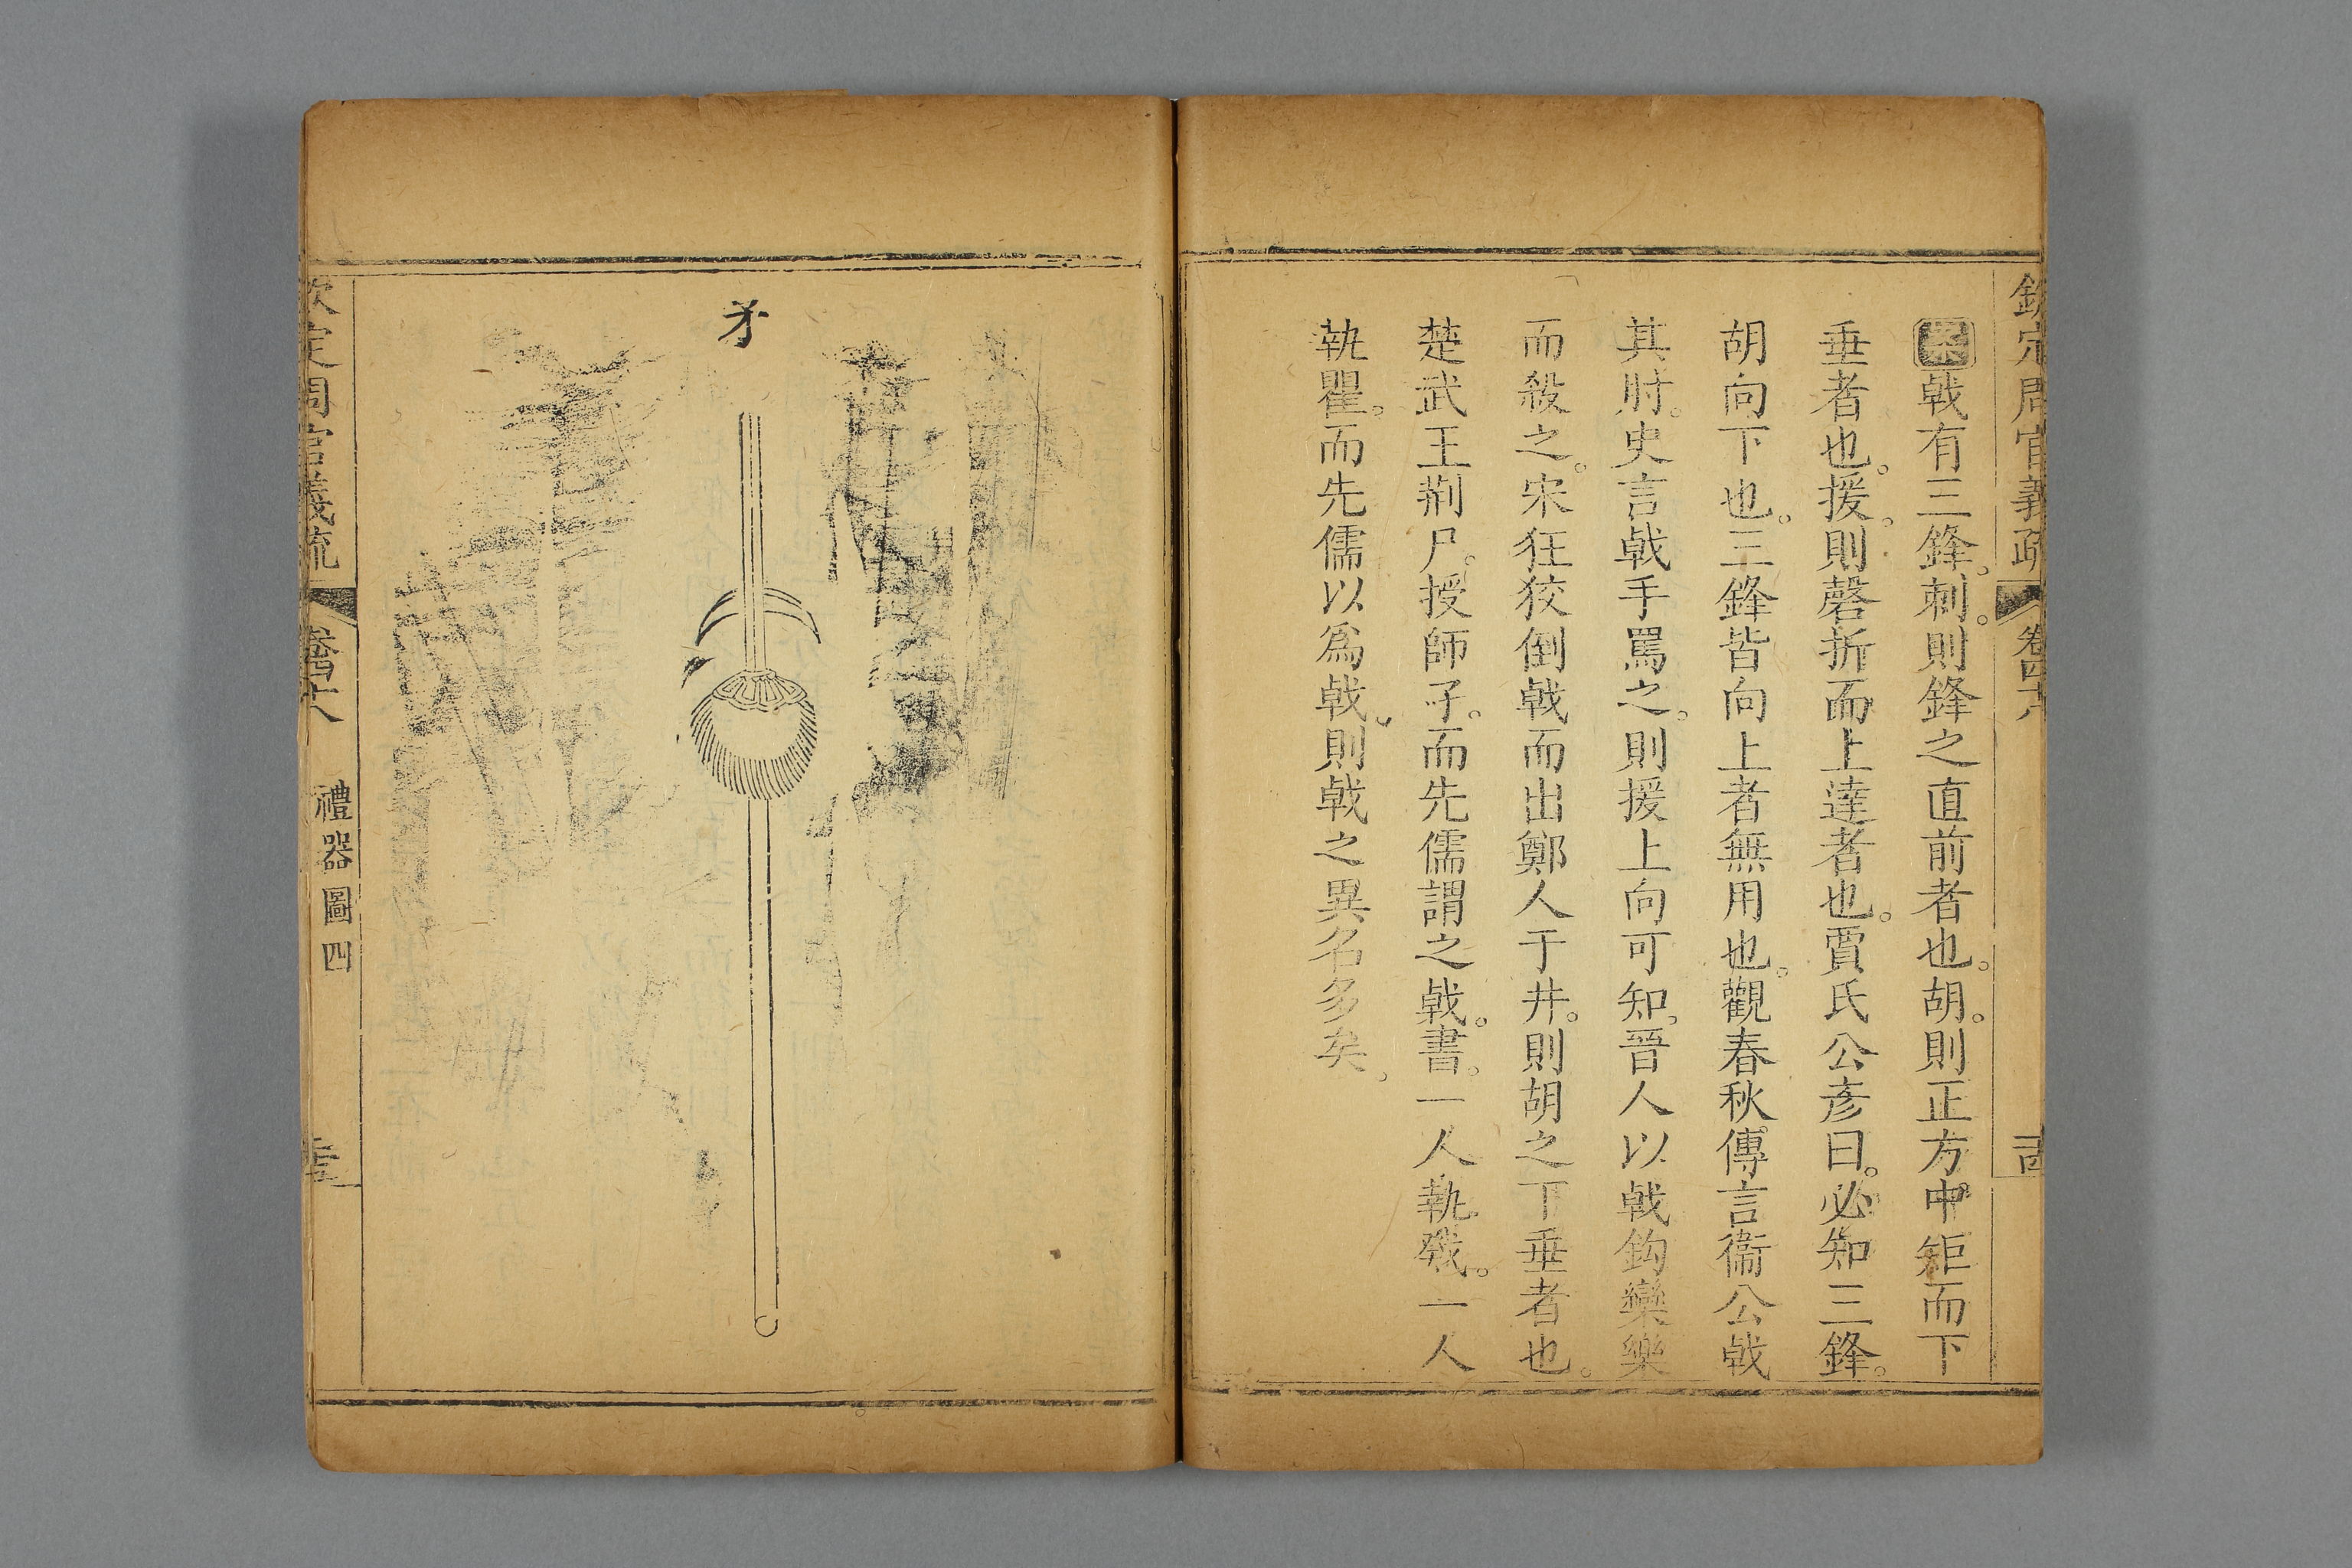 欽定周官義疏 卷四十八 十四
案戟有三鋒。刺。則鋒之直前者也。胡。則正方中矩而下
垂者也。援。則磬折而上達者也。賈氏公彥曰。必知三鋒。
胡向下也。三鋒皆向上者無用也。觀春秋傳言衞公戟
其肘。史言戟手罵之。則援上向可知。晉人以戟鈎欒樂
而殺之。宋狂狡倒戟而出鄭人于井。則胡之下垂者也。
楚武王荆尸。授師孑。而先儒謂之戟。書。一人執戣。一人
執瞿。而先儒以爲戟。則戟之異名多矣。
矛
欽定周官義疏 卷四十八 禮器圖四